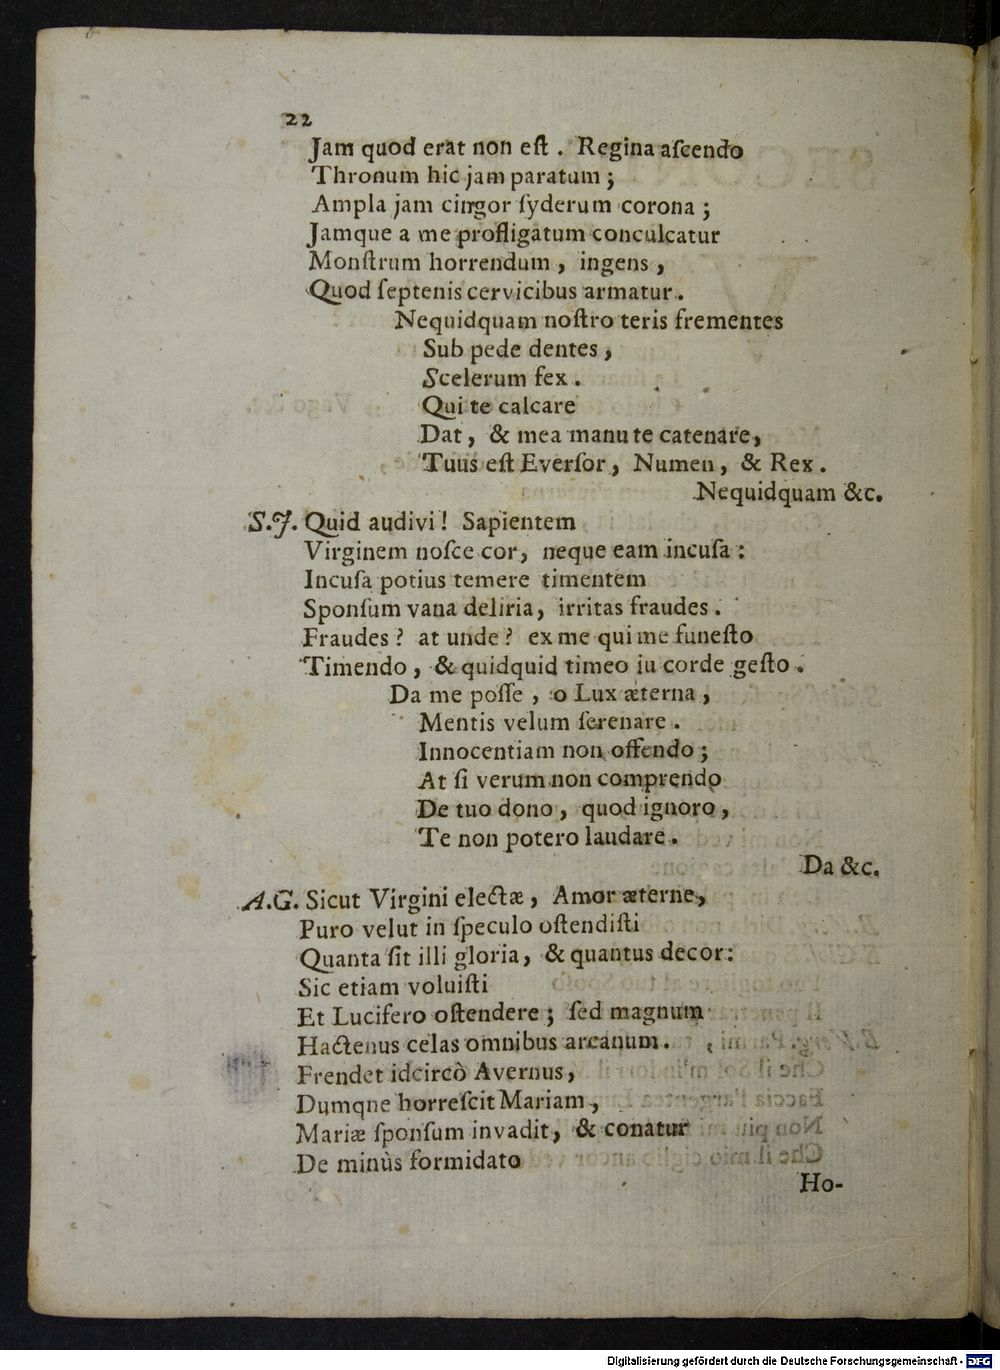 22
Jam quod erat non eſt . Regina aſcendo
Thronum hic jam paratum ;
Ampla jam cingor ſyderum corona ;
Jamque a me profligatum conculcatur
Monſtrum horrendum , ingens ,
Quod ſeptenis cervicibus armatur .
Nequidquam noſtro teris frementes
Sub pede dentes ,
Scelerum fex .
Qui te calcare
Dat , & mea manu te catenare ,
Tuus eſt Everſor , Numen , & Rex .
Nequidquam &c.
S.J. Quid audivi ! Sapientem
Virginem noſce cor, neque eam incuſa :
Incuſa potius temere timentem
Sponſum vana deliria, irritas fraudes .
Fraudes ? at unde ? ex me qui me funeſto
Timendo , & quidquid timeo iu corde geſto .
Da me poſſe , o Lux æterna ,
Mentis velum ſerenare .
Innocentiam non offendo ;
At ſi verum non comprendo
De tuo dono , quod ignoro ,
Te non potero laudare .
Da &c.
A.G. Sicut Virgini electæ , Amor æterne ,
Puro velut in ſpeculo oſtendiſti
Quanta ſit illi gloria , & quantus decor :
Sic etiam voluiſti
Et Lucifero oſtendere ; ſed magnum
Hactenus celas omnibus arcanum .
Frendet idcircò Avernus ,
Dumqne horreſcit Mariam ,
Mariæ ſponſum invadit , & conatur
De minùs formidato
Ho-
Digitalisierung gefördert durch die Deutsche Forschungsgemeinschaft - DFG